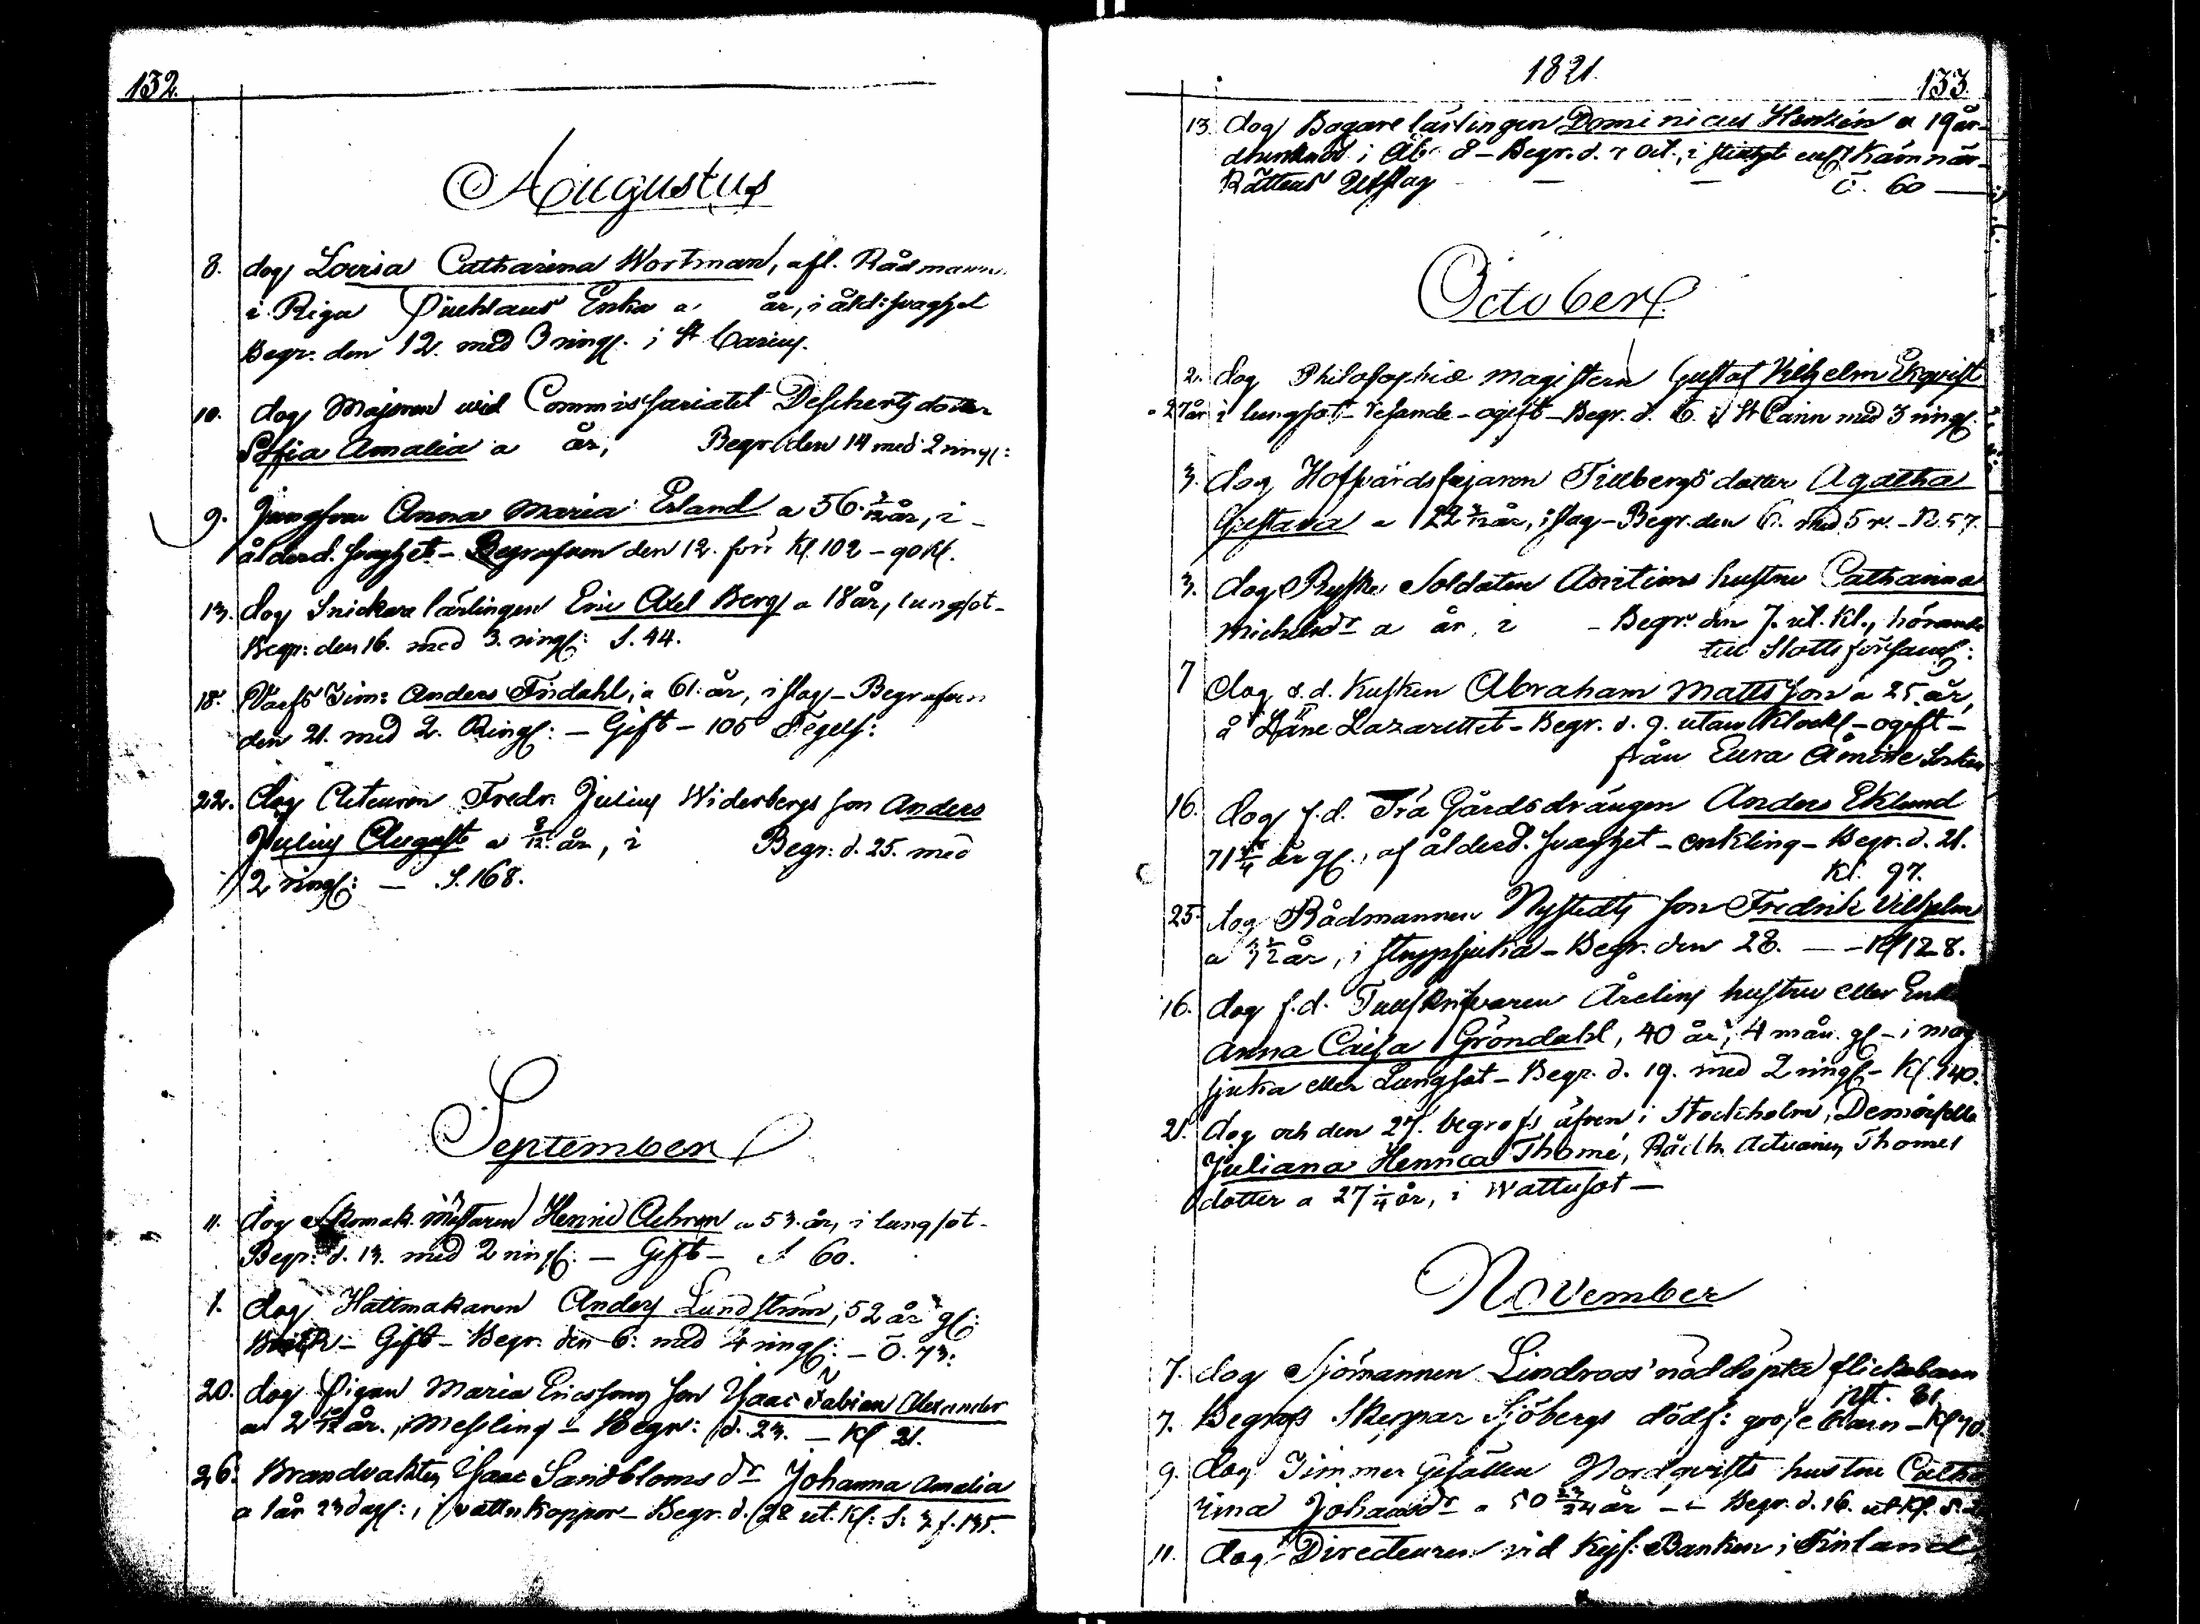 132.
Augustus
8. dog Lovisa Catharina Wortman, afl. Rådmann.
i Riga Enka a år, i ålds: svaghet
Begr. den 12. med 3 ringn. i St Carins.
10. dog Majoren wid Commissariatet Deschertz dotter
Sofia Amalia a år, Begr. den 14 med 2 ringn:
9. Jungfrun Anna Maria Erland a 56 år, i
ålderd. svaghet - Begrafven den 12. - 90 Kl.
13. dog Snickare lärlingen Eric Axel Berg a 18 år, lungsot -
Begr: den 16. med 3. ringn: S. 44.
18. Varfs Tim: Anders Findahl, a 61. år, i slag - Begrafven
den 21. med 2. Ringn: - Gift - 105 Tegels:
22. dog Acteuren Fredr. Julius Widerbergs son Anders
Julius August a 8/12 år, i Begr: d. 25. med
2 ringn: - S. 168.
September
11. dog Skomak. mästaren Henric Achren a 53. år, i lungsot -
Begr: d. 13. med 2 ringn: - Gift - S 60.
1. dog Hattmakaren Anders Lundström, 52 år gl:
- Gift - Begr. den 6: med 4 ringn: - Ö. 73:
20. dog Pigan Maria Ericssons son Isaac Fabian Alexander
a 2 10/12 år, Messling - Begr: d. 23. - Kl 21.
26. Brandvakten Isaac Sandbloms dr Johanna Amalia
a 1 år 23 dag:, i vattukoppor - Begr. d. 28 ut. Kl: S: 135.
1821.
133.
13. dog Bagare lärlingen Dominicus Henzén a 19 år
drunknad i - Begr. d. 7 Oct., i stillhet enl. Kämnärs
Rättens Utslag - - Ö. 60 -
October
2. dog Philosophiæ magistern Gustaf Vilhelm Ekqvist
a 27 år i lungsot - resande - ogift - Begr. d. 6. i St Carin med 3 ringn.
3. dog Hofvärdsfejaren Tillbergs dotter Agatha
Gustava a 22 år, i slag - Begr. den 6. med 5 r. - N. 57.
3. dog Ryska Soldaten hustru Catharina
Michelsdr a år, i - Begr: den 7. ut. Kl., hörande
till Slotts församl:
7 dog s.d. Kusken Abraham Mattsson a 25 år,
å Läne Lazarettet - Begr. d. 9. utan Klock - ogift -
från Eura Åminne Socken
16. dog f.d. Trä Gårdsdrängen Anders Eklund
71 år gl., af ålderd. svaghet - enkling - Begr. d. 21.
Kl. 97.
25. dog Rådmannen Nystedts son Fredrik Vilhelm
a år, i strypsjuka - Begr. den 28. - - Kl 128.
16. dog f.d. Tullskrifvaren Årelins hustru eller Enka
Anna Caisa Gröndahl, 40 år, 4 mån. gl - i mag
sjuka eller Lungsot - Begr. d. 19. med 2 ringn - Kl. 140.
21. dog och den 27. begrofs äfven i Stockholm, Demoiselle
Juliana Henrica Thomé, Rådh. Actuarien Thomés
dotter a 27 1/4 år, i Wattusot -
November
7. dog Sjömannen Lindroos' nöddöpta flickebarn
Nst. 81
7. Begrofs Skeppar Sjöbergs dödf: gosse barn - Kl 70
9. dog Timmer Gesällen Nordqvists hustru Catha
rina Johansdr a 50 23/24 år - - Begr. d. 16. ut Kl.
11. dog Directeuren vid Kejs: Banken i Finland